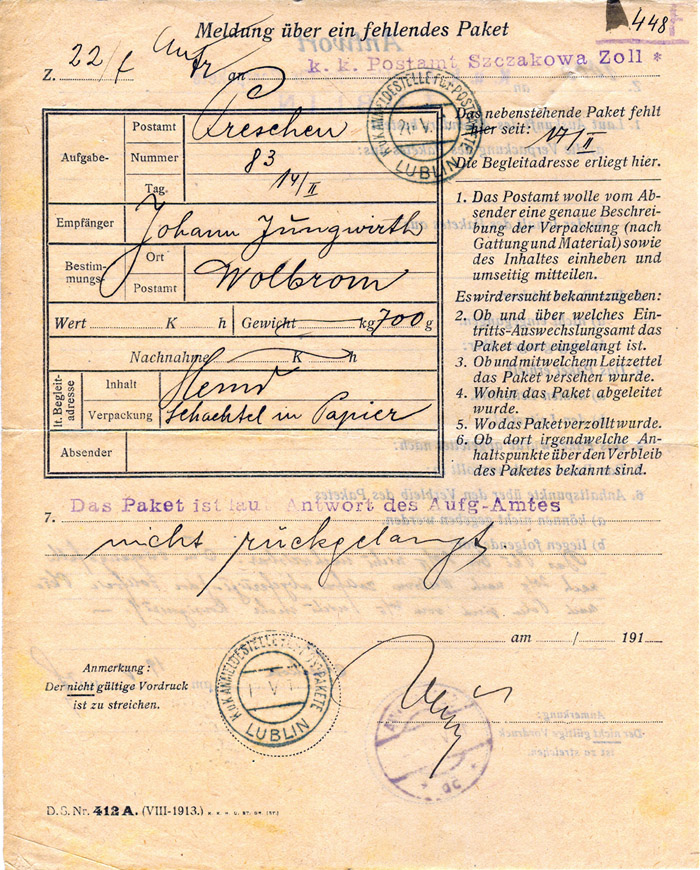 Meldung über ein fehlendes Paket
448
Z. 22/ an k. k. Postamt Szczakowa Zoll *
K.U.K. ANMELDESTELLE FÜR POSTPAKETE
LUBLIN
Das nebenstehende Paket fehlt
hier seit: 17/II
Die Begleitadresse erliegt hier.
Aufgabe-
Postamt
Nummer 83
Tag. 14/II
Empfänger Johann Jungwirth
Bestim-
mungs-
Ort
Postamt
Wolbrom
Wert K h Gewicht kg 700 g
Nachnahme K h
lt. Begleit-
adresse
Inhalt Hemd
Verpackung Schachtel in Papier
Absender
1. Das Postamt wolle vom Ab-
sender eine genaue Beschrei-
bung der Verpackung (nach
Gattung und Material) sowie
des Inhaltes einheben und
umseitig mitteilen.
Es wird ersucht bekanntzugeben:
2. Ob und über welches Ein-
tritts-Auswechslungsamt das
Paket dort eingelangt ist.
3. Ob und mit welchem Leitzettel
das Paket versehen wurde.
4. Wohin das Paket abgeleitet
wurde.
5. Wo das Paket verzollt wurde.
6. Ob dort irgendwelche An-
haltspunkte über den Verbleib
des Paketes bekannt sind.
Das Paket ist laut Antwort des Aufg-Amtes
7. nicht rückgelangt.
am / 191
K.U.K. ANMELDESTELLE FÜR POSTPAKETE
LUBLIN
Anmerkung:
Der nicht gültige Vordruck
ist zu streichen.
D.S. Nr. 412 A. (VIII-1913.)